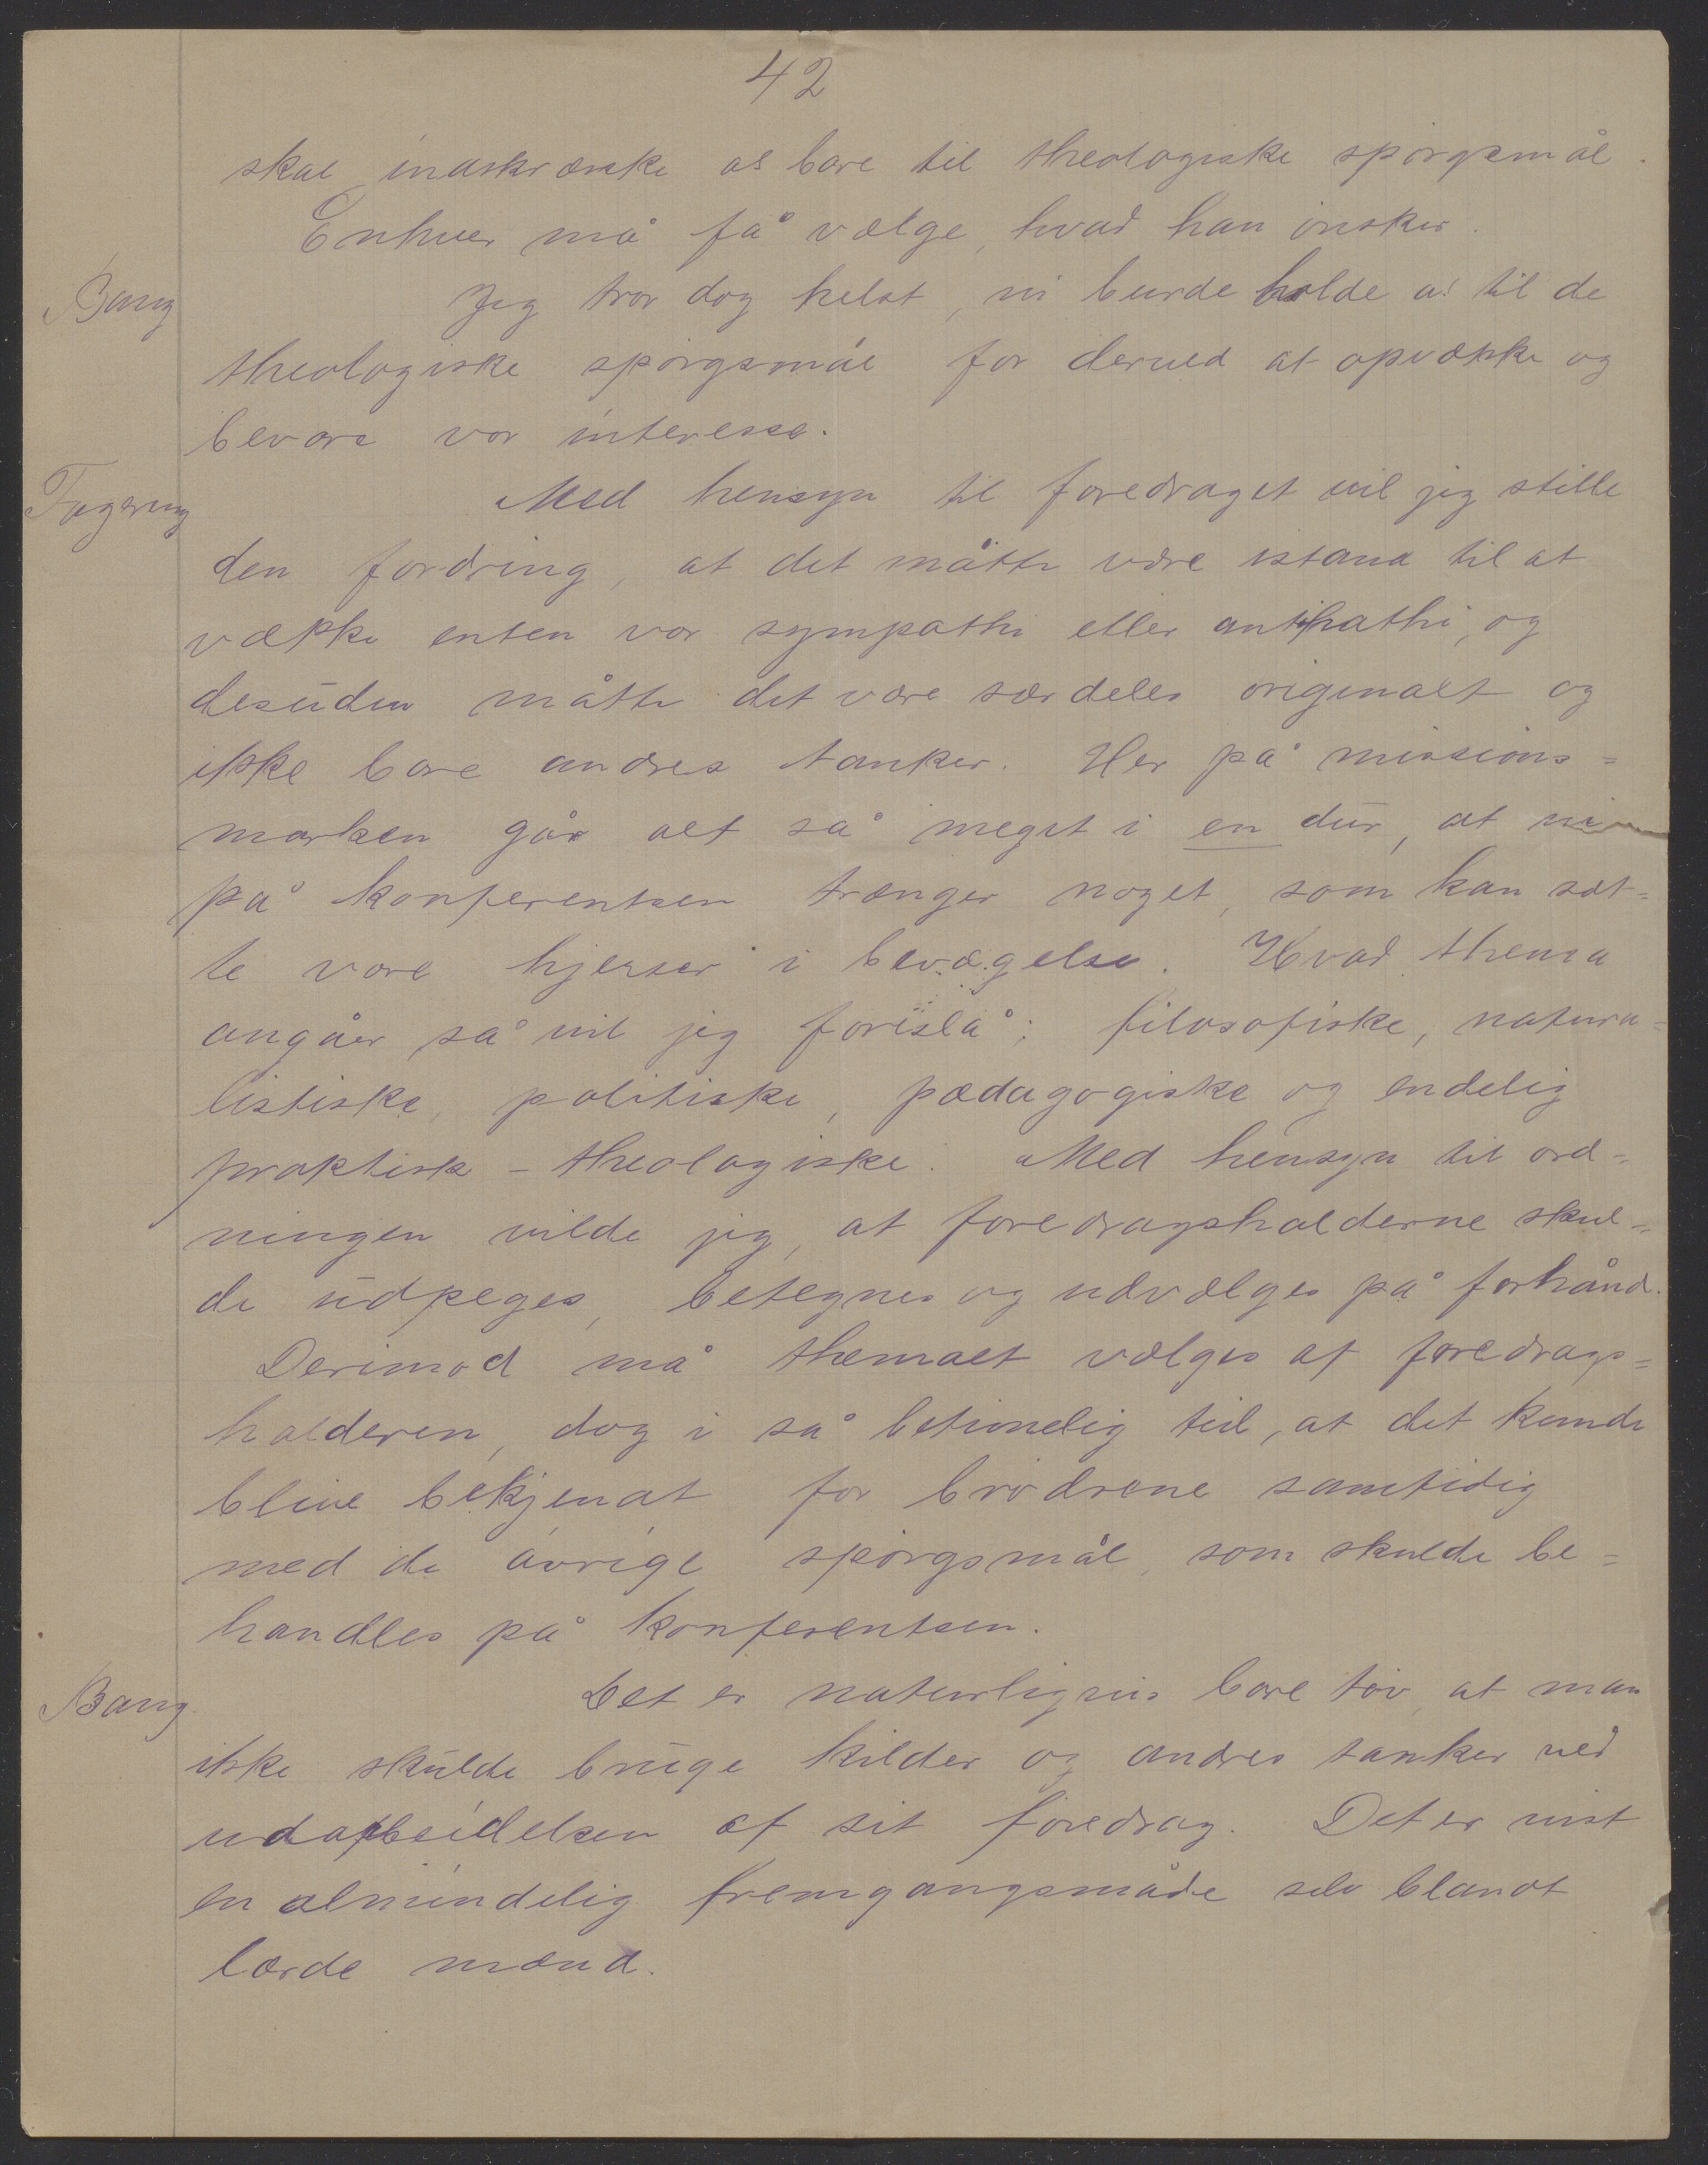 42
skal indskrænke os bare til theologiske spörgsmål.
Enhver må få vælge, hvad han önsker.
Bang
Jeg tror dog helst, vi burde holde os til de
theologiske spörgsmål for derved at opvække og
bevare vor interesse.
Fagereng
Med hensyn til foredraget vil jeg stille
den fordring, at det måtte være istand til at
vække enten vor sympathi eller antipathi, og
desuden måtte det være særdeles originalt og
ikke bare andres tanker. Her på missions=
marken går alt så meget i en dur, at vi
på konferentsen trænger noget, som kan sæt=
te vore hjerser i bevægelse. Hvad thema
angåer så vil jeg foreslå: filosofiske, natura=
listiske, politiske, pædagogiske og endelig
praktisk-theologiske. Med hensyn til ord=
ningen vilde jeg, at foredragsholderne skul=
de udpeges, betegnes og udvælges på forhånd.
Derimod må themaet vælges af foredrags=
holderen, dog i så betimelig tid, at det kunde
blive bekjendt for brödrene samtidig
med de övrige spörgsmål, som skulde be=
handles på konferentsen.
Bang
Det er naturligvis bare töv, at man
ikke skulde bruge kilder og andres tanker ved
udarbeidelsen af sit foredrag. Det er vist
en almindelig fremgangsmåde selv blandt
lærde mænd.